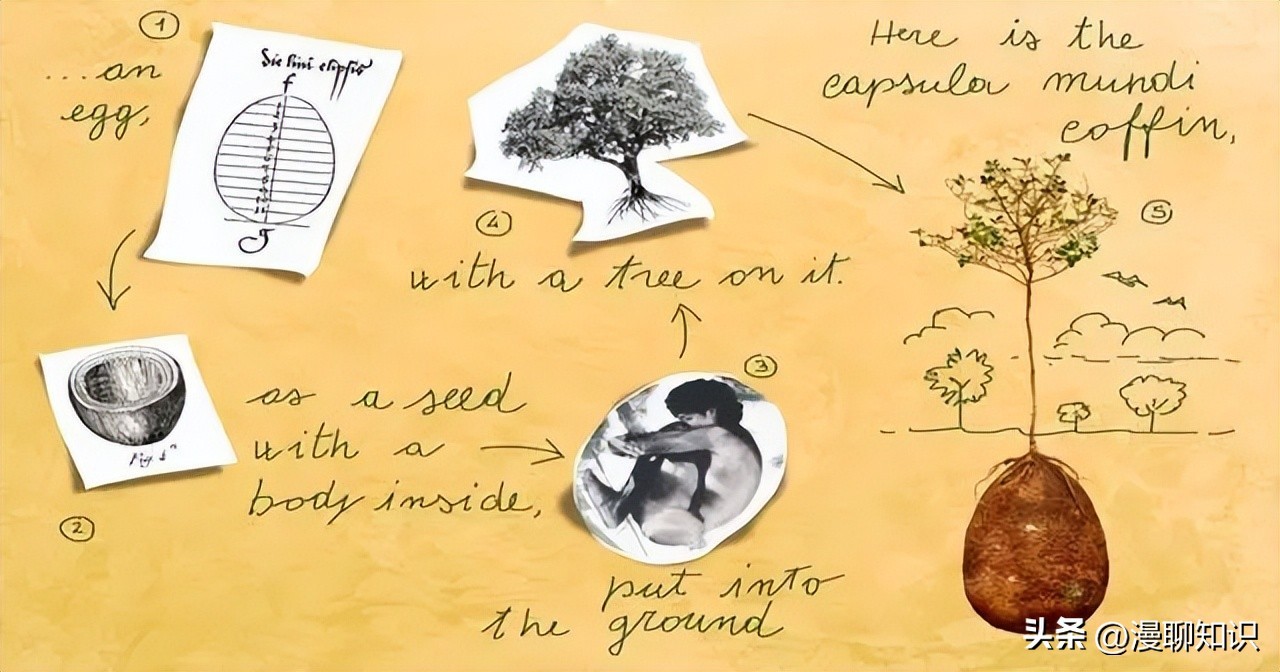 1
...an
egg,
f
g
2
Fig. 4ª
as a seed
with a
body inside,
3
put into
the ground
4
with a tree on it.
Here is the
capsula mundi
coffin,
5
头条 @漫聊知识